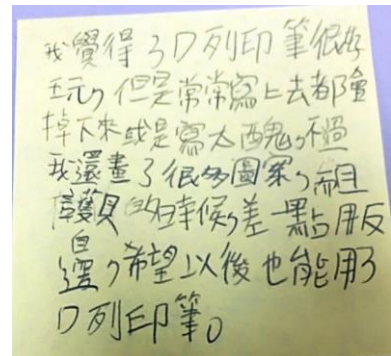 我覺得3D列印筆很好
玩，但是常常寫上去都會
掉下來或是寫太醜，不過
我還畫了很多圖案，而且
的時候，差一點用反
，希望以後也能用3
D列印筆。